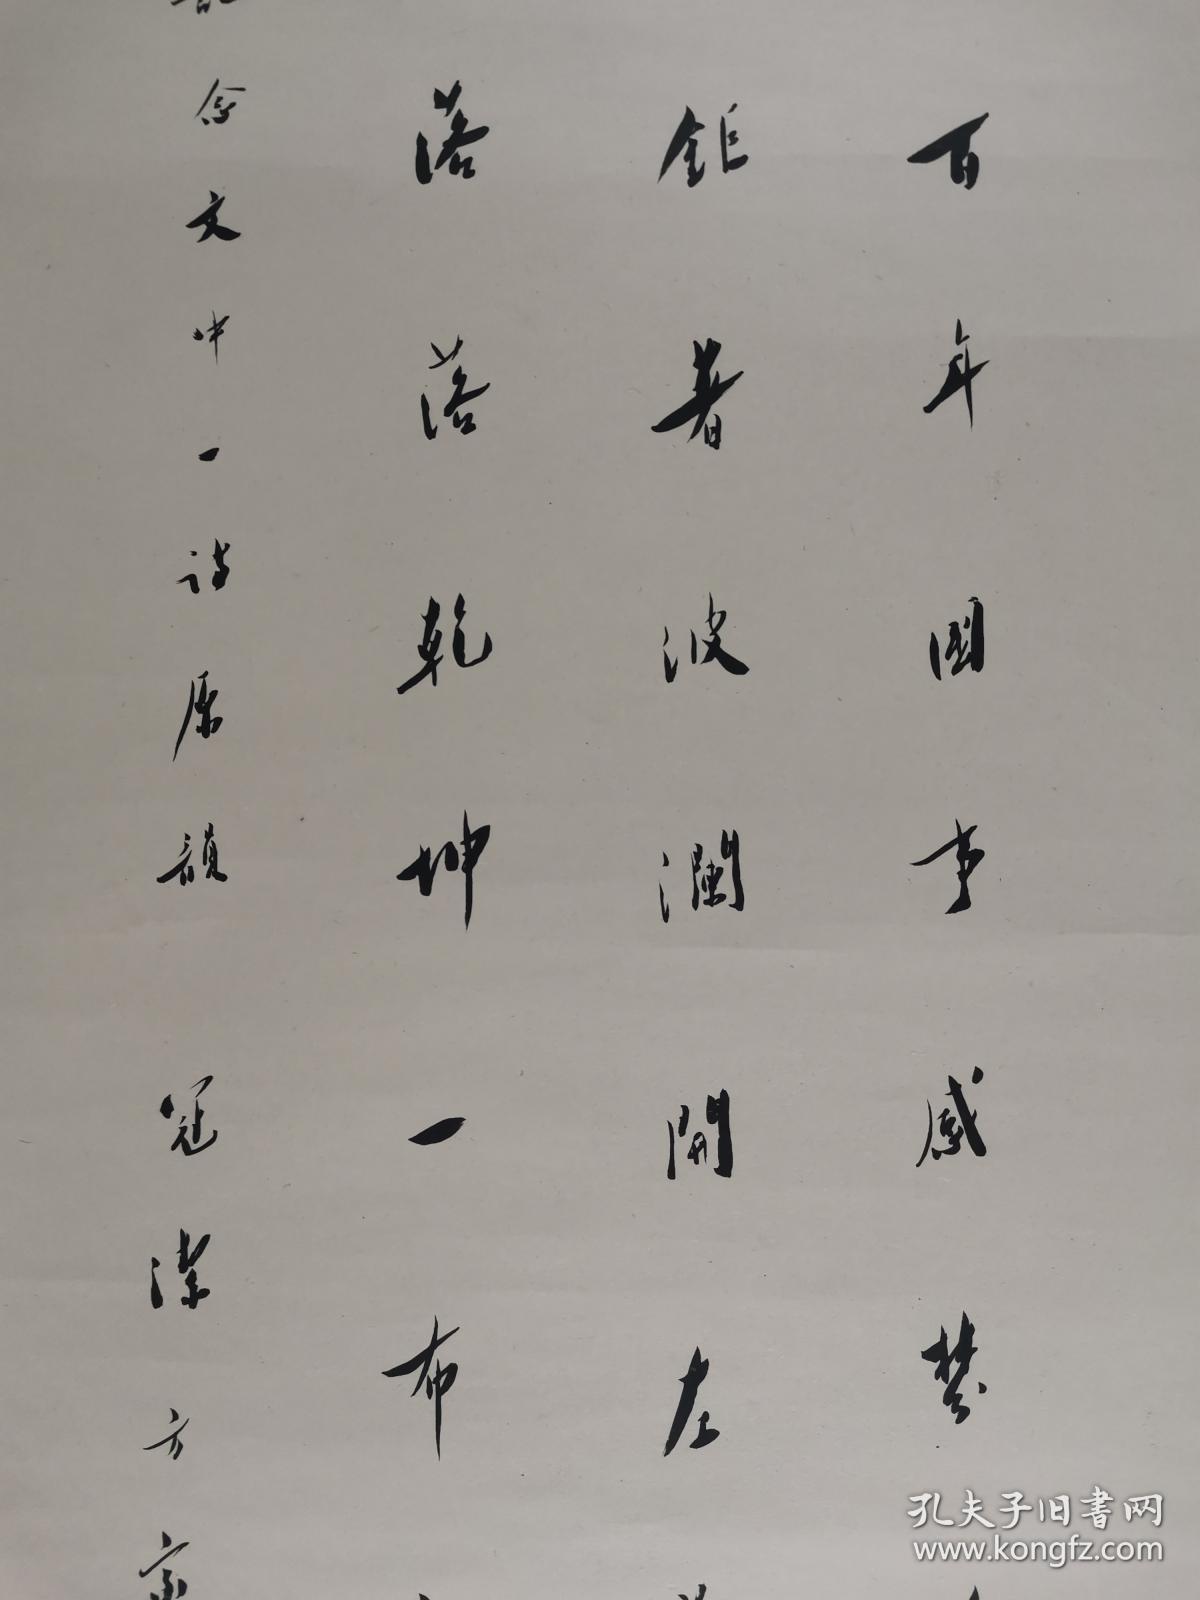 百年國事感樊
鉅著波瀾開左
落落乾坤一布
念文中一詩原韻 冠潔方家
孔夫子旧书网
www.kongfz.com